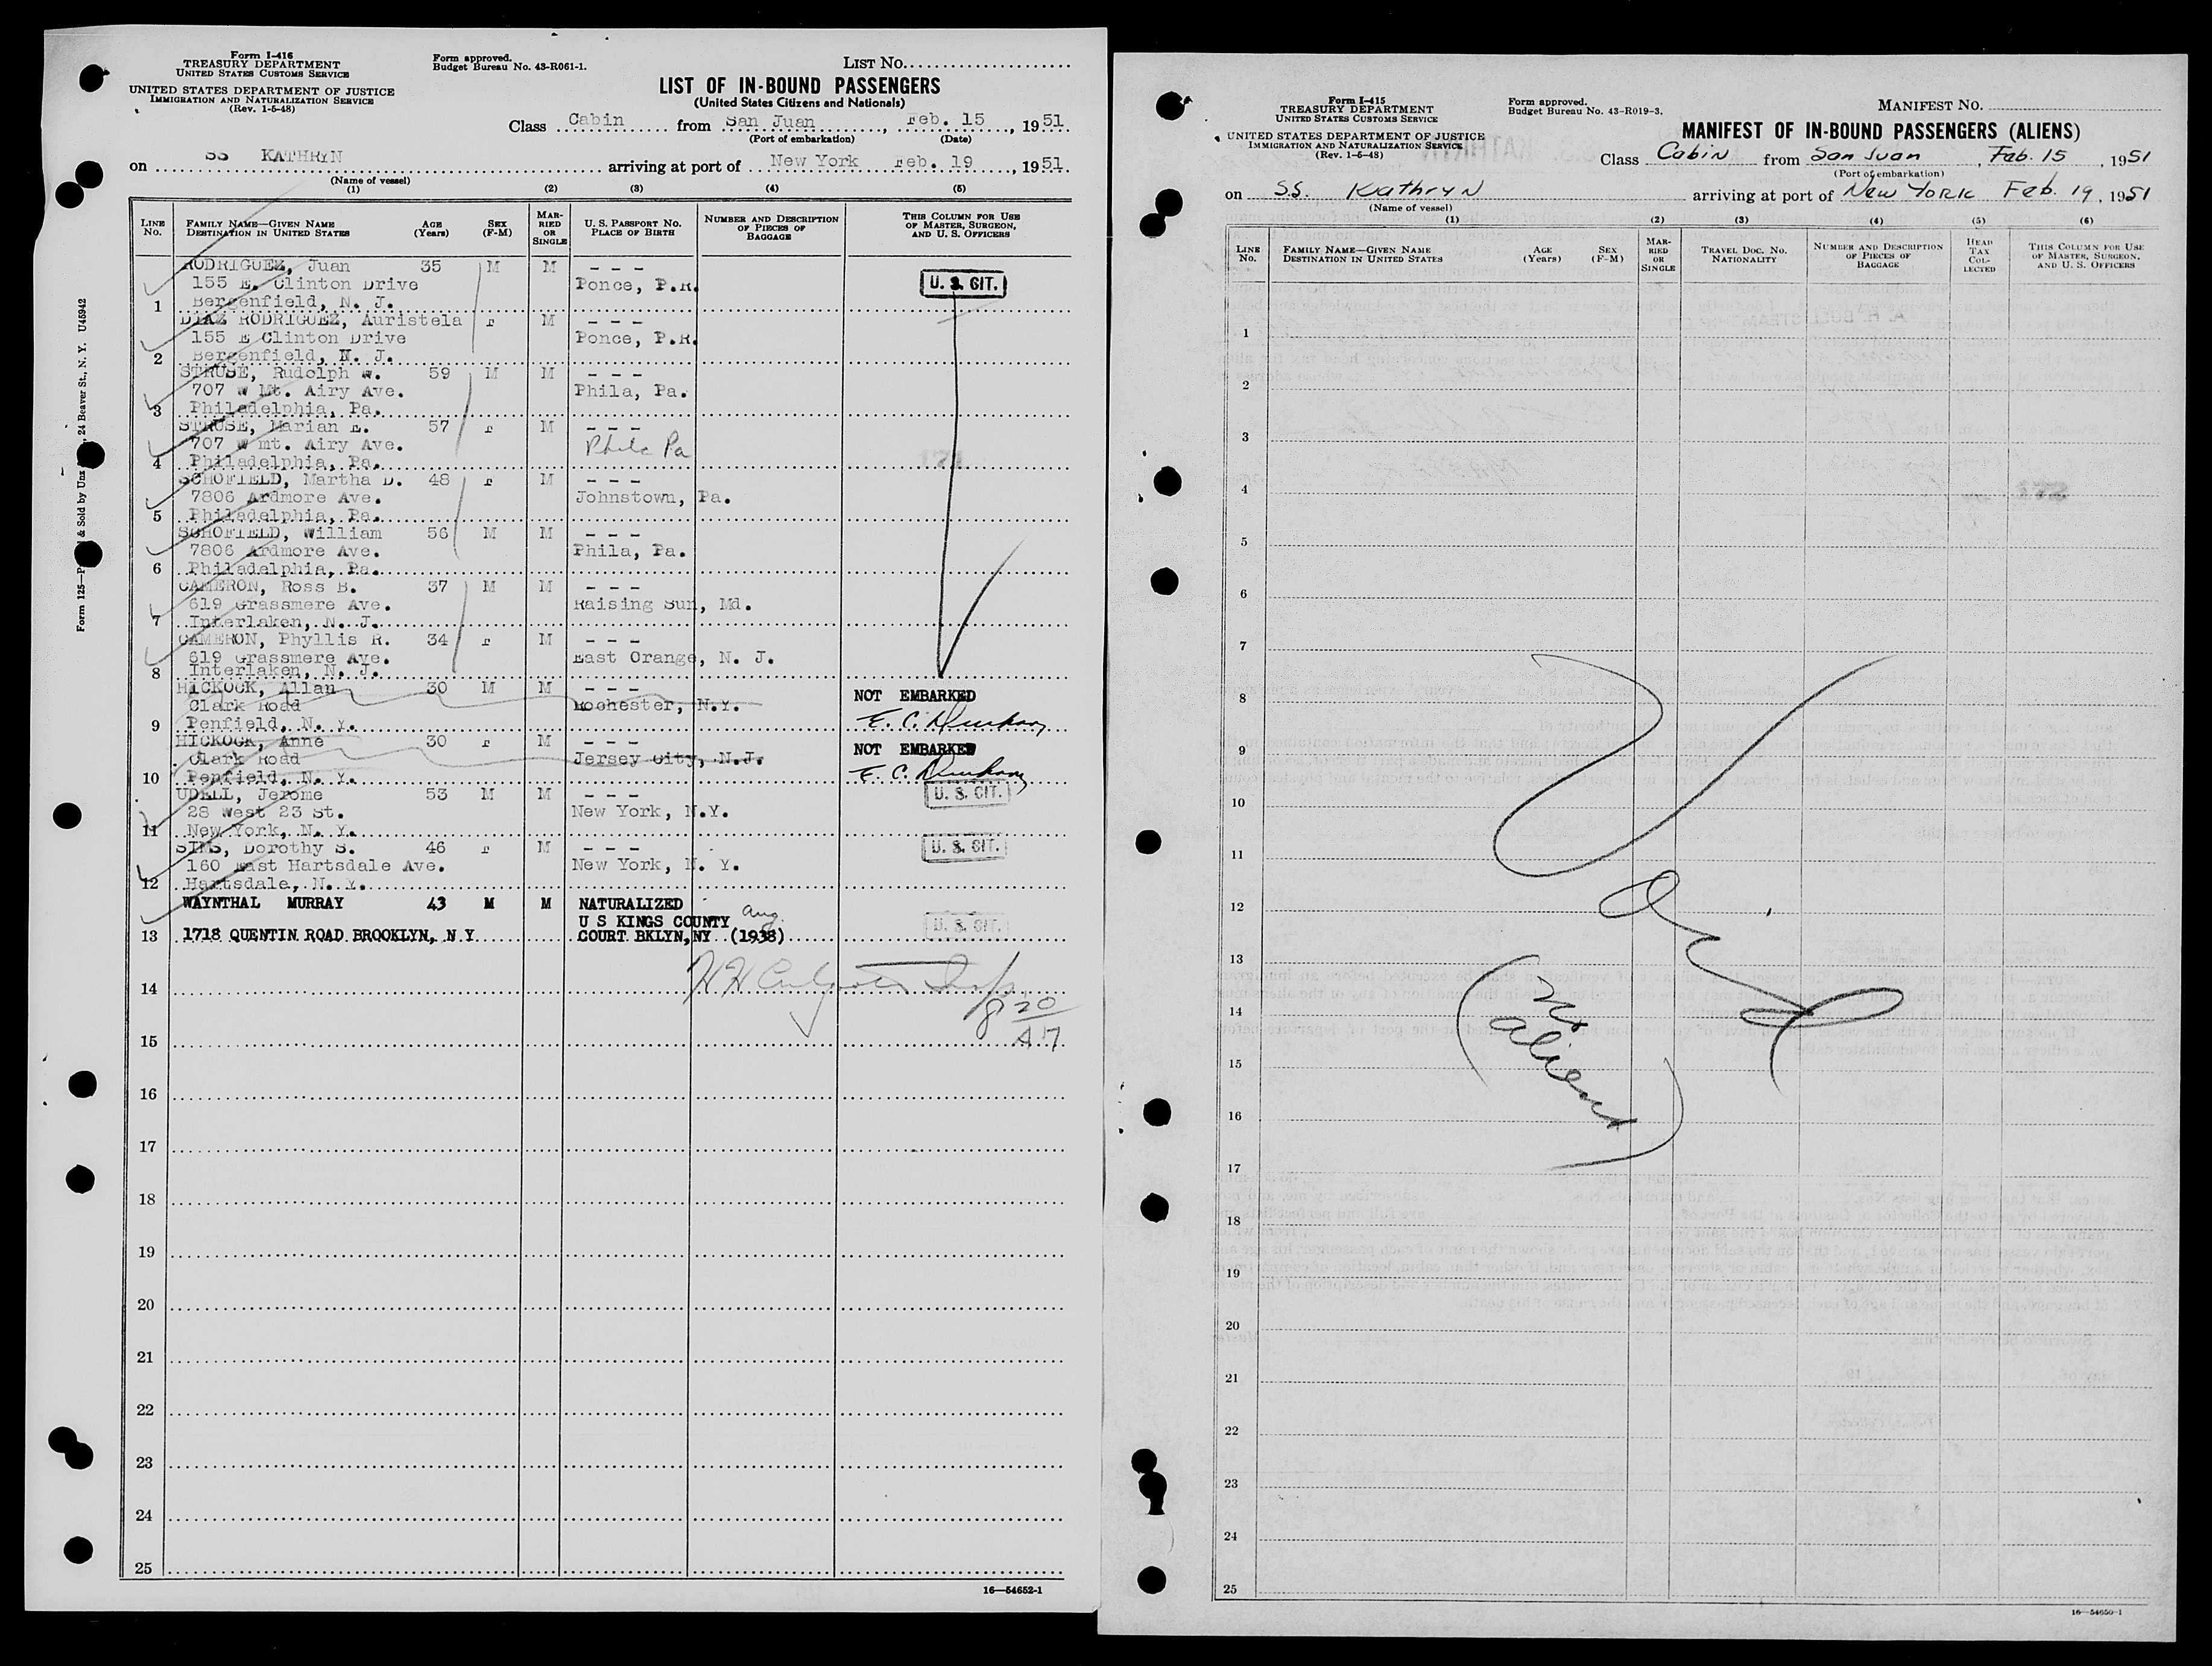 Form I-416
TREASURY DEPARTMENT
UNITED STATES CUSTOMS SERVICE
UNITED STATES DEPARTMENT OF JUSTICE
IMMIGRATION AND NATURALIZATION SERVICE
(Rev. 1-5-48)
Form approved.
Budget Bureau No. 43-R061-1.
LIST No.
LIST OF IN-BOUND PASSENGERS
(United States Citizens and Nationals)
Class Cabin from San Juan, Feb. 15, 1951
(Port of embarkation) (Date)
on SS KATHRYN arriving at port of New York Feb. 19, 1951
(Name of vessel)
(1) (2) (3) (4) (5)
LINE No. FAMILY NAME—GIVEN NAME DESTINATION IN UNITED STATES AGE (Years) SEX (F-M) MARRIED OR SINGLE U. S. PASSPORT NO. PLACE OF BIRTH NUMBER AND DESCRIPTION OF PIECES OF BAGGAGE THIS COLUMN FOR USE OF MASTER, SURGEON, AND U. S. OFFICERS
RODRIGUEZ, Juan 35 M M - - -
155 E. Clinton Drive Ponce, P.R. U. S. CIT.
1 Bergenfield, N. J.
DIAZ RODRIGUEZ, Auristela F M - - -
155 E Clinton Drive Ponce, P.R.
2 Bergenfield, N. J.
STRUSE, Rudolph W. 59 M M - - -
707 W Mt. Airy Ave. Phila, Pa.
3 Philadelphia, Pa.
STRUSE, Marian E. 57 F M - - -
707 W mt. Airy Ave. Phila Pa
4 Philadelphia, Pa.
SCHOFIELD, Martha D. 48 F M - - -
7806 Ardmore Ave. Johnstown, Pa.
5 Philadelphia, Pa.
SCHOFIELD, William 56 M M - - -
7806 Ardmore Ave. Phila, Pa.
6 Philadelphia, Pa.
CAMERON, Ross B. 37 M M - - -
619 Grassmere Ave. Raising Sun, Md.
7 Interlaken, N. J.
CAMERON, Phyllis R. 34 F M - - -
619 Grassmere Ave. East Orange, N. J.
8 Interlaken, N. J.
HICKOCK, Allan 30 M M - - - NOT EMBARKED
Clark Road Rochester, N.Y.
9 Penfield, N. Y.
HICKOCK, Anne 30 F M - - - NOT EMBARKED
Clark Road Jersey City, N.J.
10 Penfield, N. Y.
UDELL, Jerome 53 M M - - - U. S. CIT.
28 West 23 St. New York, N.Y.
11 New York, N. Y.
SIMS, Dorothy S. 46 F M - - - U. S. CIT.
160 East Hartsdale Ave. New York, N. Y.
12 Hartsdale, N. Y.
WAYNTHAL MURRAY 43 M M NATURALIZED
U S KINGS COUNTY Aug. U. S. CIT.
13 1718 QUENTIN ROAD BROOKLYN, N Y COURT BKLYN, NY (1938)
14
15
16
17
18
19
20
21
22
23
24
25
16—54652-1
Form I-415
TREASURY DEPARTMENT
UNITED STATES CUSTOMS SERVICE
UNITED STATES DEPARTMENT OF JUSTICE
IMMIGRATION AND NATURALIZATION SERVICE
(Rev. 1-5-48)
Form approved.
Budget Bureau No. 43-R019-3.
MANIFEST No.
MANIFEST OF IN-BOUND PASSENGERS (ALIENS)
Class Cabin from San Juan, Feb. 15 1951
(Port of embarkation)
on S.S. Kathryn arriving at port of New York Feb. 19, 1951
(Name of vessel)
(1) (2) (3) (4) (5) (6)
LINE No. FAMILY NAME—GIVEN NAME DESTINATION IN UNITED STATES AGE (Years) SEX (F-M) MARRIED OR SINGLE TRAVEL DOC. NO. NATIONALITY NUMBER AND DESCRIPTION OF PIECES OF BAGGAGE HEAD TAX COLLECTED THIS COLUMN FOR USE OF MASTER, SURGEON, AND U. S. OFFICERS
1
2
3
4
5
6
7
8
9
10
11
12
13
14
(No
15
aliens)
16
17
18
19
20
21
22
23
24
25
16—54650-1